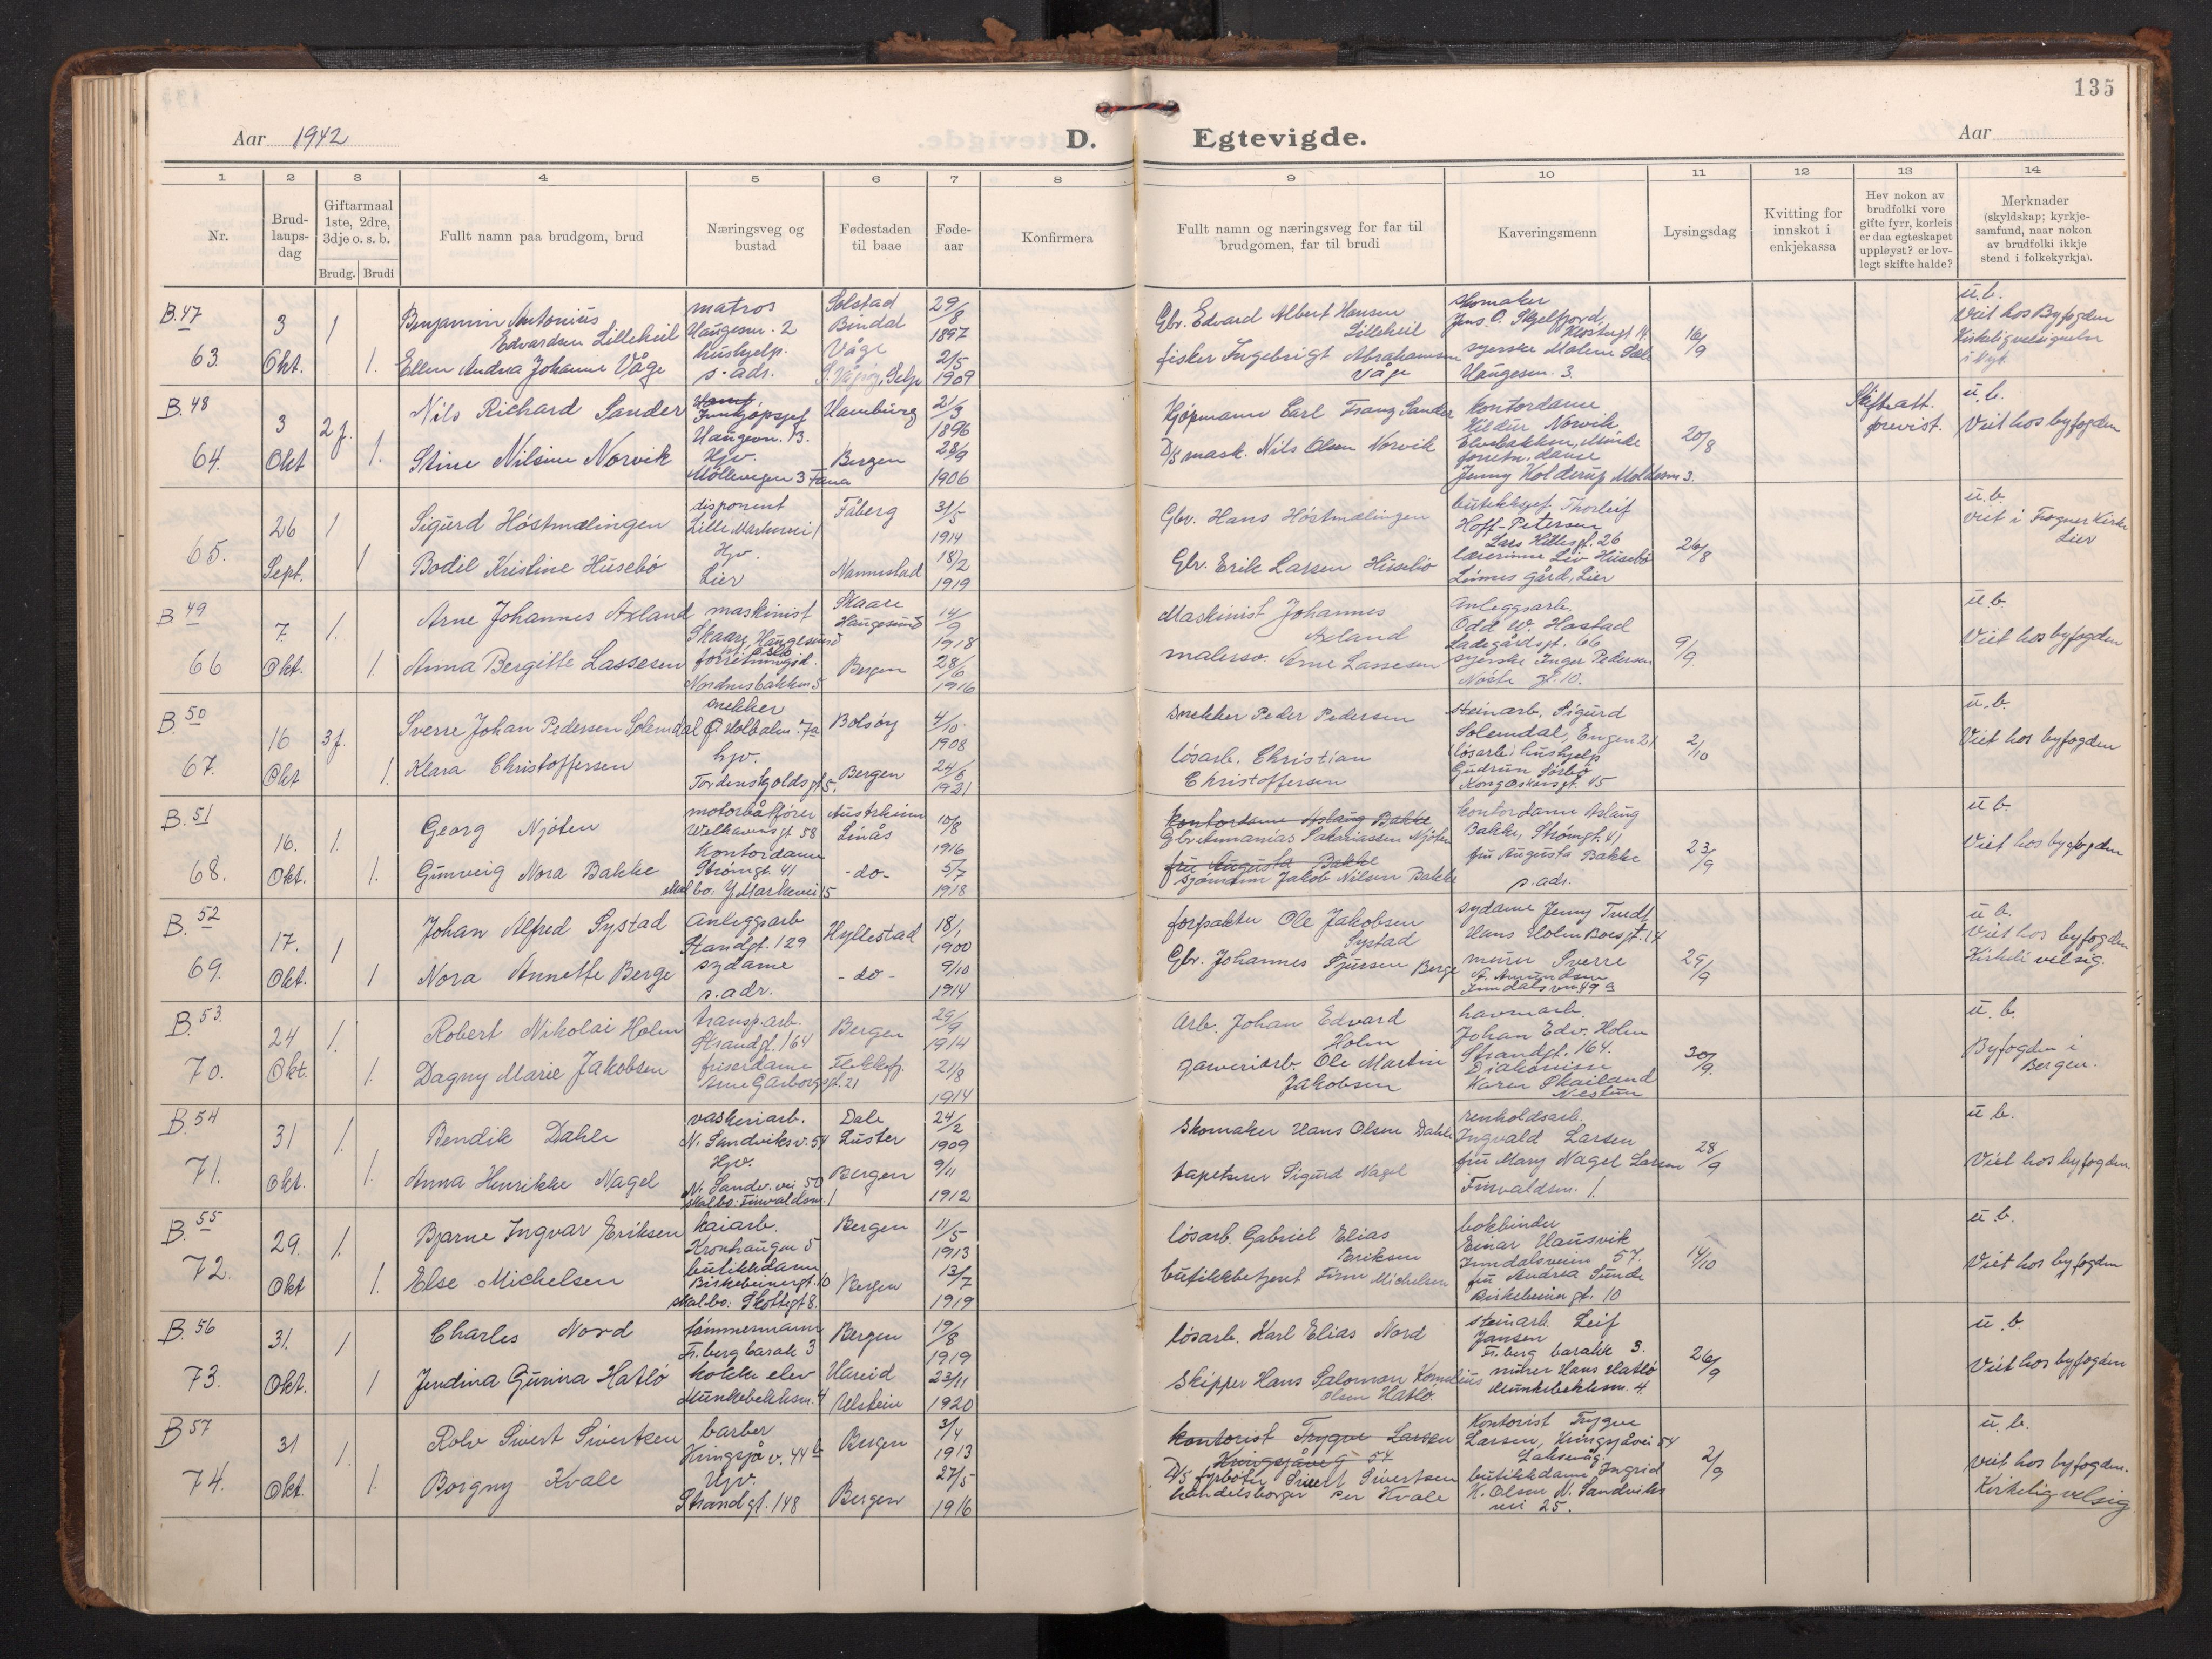 135
Aar 1942
D.
Egtevigde.
Aar
1 2 3 4 5 6 7 8
9 10 11 12 13 14
Nr.
Brud-
laups-
dag
Giftarmaal
1ste, 2dre,
3dje o. s. b.
Brudg. Brudi
Fullt namn paa brudgom, brud
Næringsveg og
bustad
Fødestaden
til baae
Føde-
aar
Konfirmera
Fullt namn og næringsveg for far til
brudgomen, far til brudi
Kaveringsmenn
Lysingsdag
Kvitting for
innskot i
enkjekassa
Hev nokon av
brudfolki vore
gifte fyrr, korleis
er daa egteskapet
uppleyst? er lov-
legt skifte halde?
Merknader
(skyldskap; kyrkje-
samfund, naar nokon
av brudfolki ikkje
stend i folkekyrkja).
B. 47
63.
3
Okt.
1
1.
Benjamin Antonius
Edvardsen Lilleheil
Ellen Andrea Johanne Våge
matros
Haugesm. 2
hushjelp.
s. adr.
Solstad
Bindal
Våge
S. Vågsøy, Selje
29/8
1897
2/5
1909
Gbr. Edvard Albert Hansen
Lilleheil
fisker Ingebrigt Abrahamsen
Våge
skomaker
Jens O. Skjelfjord,
Klostergt. 14
syerske Malene Sæle
Haugesm. 3.
16/9
u.b.
Viet hos Byfogden
Kirkelig velsignelse
i Nyk.
B. 48
64.
3
Okt
2 f.
1.
Nils Richard Sander
Stine Nilsine Norvik
Innkjøpssjef
Haugevn. 13.
Hjv.
Möllevegen 3 Fana
Hamburg
Bergen
21/3
1896
28/9
1906
Kjøpmann Carl Franz Sander
D/S mask. Nils Olsen Norvik
Kontordame
Hildur Norvik
Elvebakken, Minde
forretn. dame
Jenny Holderup Moldesm 3.
20/8
Skifteatt.
forevist.
u.b.
Viet hos byfogden
65.
26
Sept.
1
1
Sigurd Höstmælingen
Bodil Kristine Husebö
disponent
Lille Markevei 1
Hjv.
Lier
Fåberg
Nannestad
31/5
1914
18/2
1919
Gbr. Hans Höstmælingen
Gbr. Erik Larsen Husebö
butikksjef Thorleif
Hoff-Petersen
Lars Hillesgt. 26
lærerinne Liv Husebö
Linnes gård, Lier
26/8
u.b.
viet i Frogner Kirke
Lier
B 49
66
7.
Okt.
1.
1.
Arne Johannes Axland
Anna Bergitte Lassesen
maskinist
Skaare, Haugesund
pt. Oslo
forretningsd.
Nordnesbakken 5
Skaare
Haugesund
Bergen
14/9
1918
28/6
1916
Maskinist Johannes
Axland
malersv. Arne Lassesen
Anleggsarb.
Odd W. Hastad
Ladegårdsgt. 66
syerske Inger Pedersen
Nöste gt. 10.
9/9
u.b.
Viet hos byfogden
B. 50
67.
16
Okt
3 f.
1.
Sverre Johan Pedersen Solemdal
Klara Christoffersen
snekker
Ø. Holbalm. 7a
hjv.
Tordenskjolds gt 5.
Bolsöy
Bergen
4/10.
1908
24/6
1921
snekker Peder Pedersen
lösarb. Christian
Christoffersen
steinarb. Sigurd
Solemdal, Engen 21
(lösarb) hushjelp
Gudrun Sørbø
Kong Oskarsgt. 45
2/10
u.b.
Viet hos byfogden
B. 51
68.
16.
Okt.
1.
1.
Georg Njöten
Gunveig Nora Bakke
motorbåtförer
Welhavensgt 58
Kontordame
Strömgt. 41
skal bo. Y. Markevei 15
Austrheim
Linås
-do-
10/8
1916
5/7
1918
kontordame Aslaug Bakke
Gbr. Annanias Sakariassen Njöten
fru Augusta Bakke
sjömann Jakob Nilsen Bakke
kontordame Aslaug
Bakke, Strömgt. 41
fru Augusta Bakke
s. adr.
23/9
u.b.
Viet hos byfogden
B. 52
69.
17.
Okt.
1
1
Johan Alfred Systad
Nora Annette Berge
Anleggsarb
Strandgt. 129
sydame
s. adr.
Hyllestad
-do-
18/1
1900
9/10
1914
forpakter Ole Jakobsen
Systad
Gbr. Johannes Sjursen Berge
sydame Jenny Tvedt
Hans Holm Boesgt. 14
murer Sverre
A. Amundsen
Inndalsvn. 49 a
29/9
u.b.
Viet hos byfogden
Kirkeli velsig.
B. 53.
70.
24
Okt.
1.
1.
Robert Nikolai Holm
Dagny Marie Jakobsen
transp. arb.
Strandgt. 164
friserdame
Arne Garborgsgt. 21
Bergen
Flekkefj.
29/9
1914
21/8
1914
Arb. Johan Edvard
Holm
garveriarb. Ole Martin
Jakobsen
havnearb.
Johan Edv. Holm
Strandgt. 164.
Diakonisse
Karen Skailand
Nestun
30/9.
u.b.
Byfogden i
Bergen.
B. 54
71.
31
Okt.
1.
1.
Bendik Dahle
Anna Henrikke Nagel
vaskeriarb.
N. Sandviksv. 54
Hjv.
N. Sandv. vei 50
skal bo: Finvaldsm. 1
Dale
Luster
Bergen
24/2
1909
9/11
1912
Skomaker Hans Olsen Dahle
tapetserer Sigurd Nagel
renholdsarb.
Ingvald Larsen
fru Mary Nagel Larsen
Finvaldsm. 1.
28/9
u.b.
Viet hos byfogden.
B. 55
72.
29.
Okt
1.
1.
Bjarne Ingvar Eriksen
Else Michelsen
kaiarb.
Kronhaugen 5
butikkdame
Birkebeinergt. 10
skal bo: Skottegt 8.
Bergen
Bergen
11/5
1913
13/7
1919
lösarb. Gabriel Elias
Eriksen
butikkbetjent Finn Michelsen
bokbinder
Einar Hausvik
Inndalsveien 57.
fru Andrea Sunde
Birkebeinergt. 10
14/10
u.b.
Viet hos byfogden
B. 56
73.
31.
Okt.
1
1
Charles Nord
Jendina Gunna Hatlö
tömmermann
Fr. berg barak 3
kokke elev
Munkebekksm. 4
Bergen
Hareid
Ulstein
19/8
1919
23/11
1920
lösarb. Karl Elias Nord
Skipper Hans Salomon Kornelius
Olsen Hatlö.
steinarb. Leif
Jansen
Fr. berg barakk 3.
murer Hans Hatlö
Munkebekksm. 4.
26/9
u.b.
Viet hos byfogden
B 57
74.
31
Okt.
1.
1.
Rolv Sivert Sivertsen
Borgny Kvale
barber
Kringsjå v. 44 b
Hjv.
Strandgt. 148
Bergen
Bergen
3/4
1913
27/5
1916
kontorist Trygve Larsen
Kringsjåveg 54
D/S fyrböter Sivert Sivertsen
handelsborger Per Kvale
Kontorist Trygve
Larsen, Kringsjåvei 54
Laksevåg.
butikkdame Ingrid
K. Olsen N. Sandviks
vei 25.
2/9
u.b.
viet hos byfogden.
Kirkelig velsig